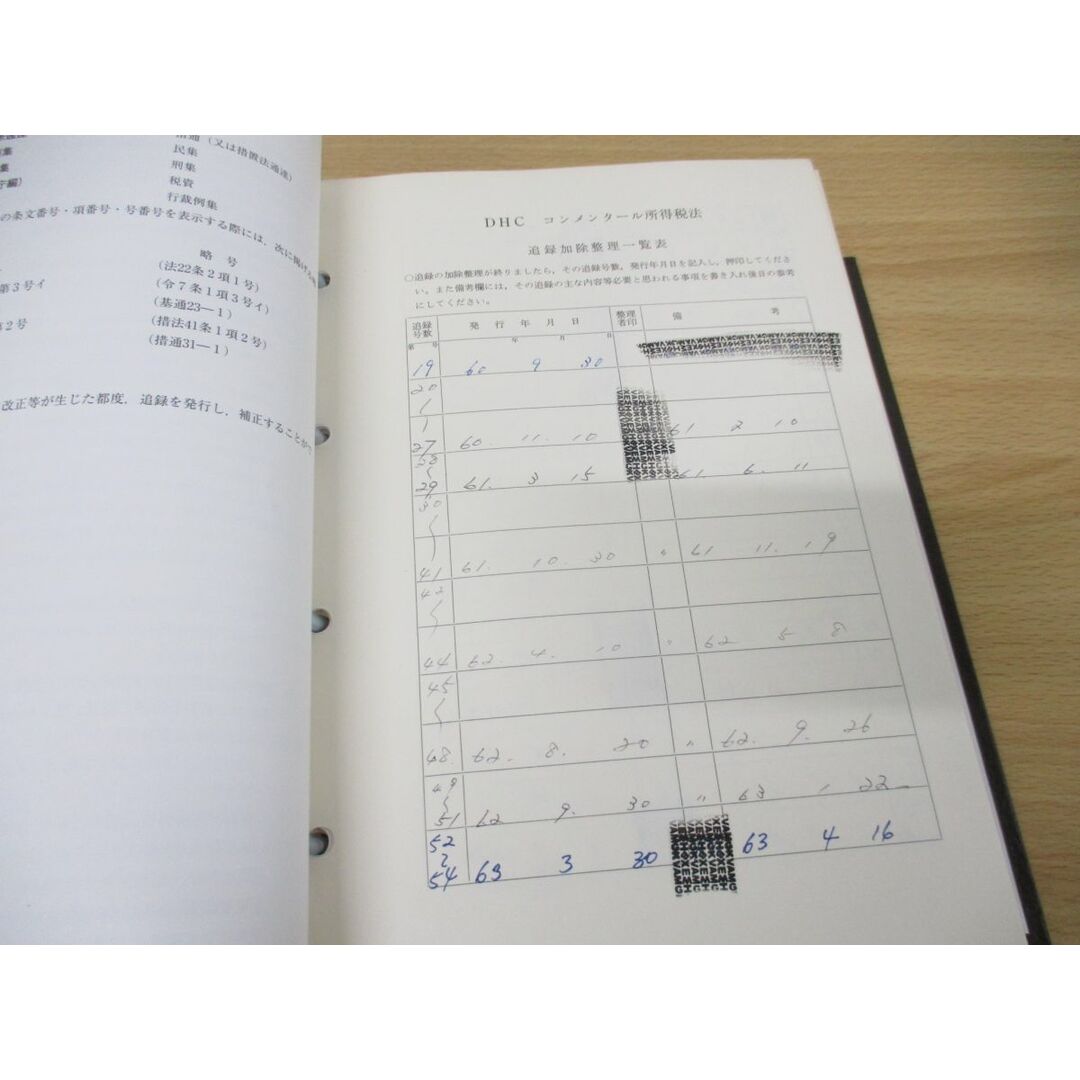 措通（又は措置法通達）
民集
刑集
税資
行裁例集
の条文番号・項番号・号番号を表示する際には，次に掲げる
略 号
(法22条2項1号)
第3号イ
(令7条1項3号イ)
(基通23―1)
第2号
(措法41条1項2号)
(措通31―1)
改正等が生じた都度，追録を発行し，補正することがで
DHC コンメンタール所得税法
追録加除整理一覧表
○追録の加除整理が終りましたら，その追録号数，発行年月日を記入し，押印してくださ
い。また備考欄には，その追録の主な内容等必要と思われる事項を書き入れ後日の参考
にしてください。
追録号数 発行年月日 整理者印 備考
第 号 年 月 日
19 60 9 30
20
27 60. 11. 10 61 2 10
28
29 61. 3 15 61. 6. 11
30
41 61. 10. 30 〃 61 11. 19
42
44 62. 4. 10 〃 62 5 8
45
48. 62. 8. 20 〃 62. 9. 26
49
51 62 9. 30 〃 63 1 22
52
54 63 3 30 63 4 16